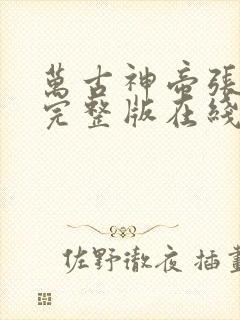 萬古神帝張
完整版在綫
佐野徹夜 插畫